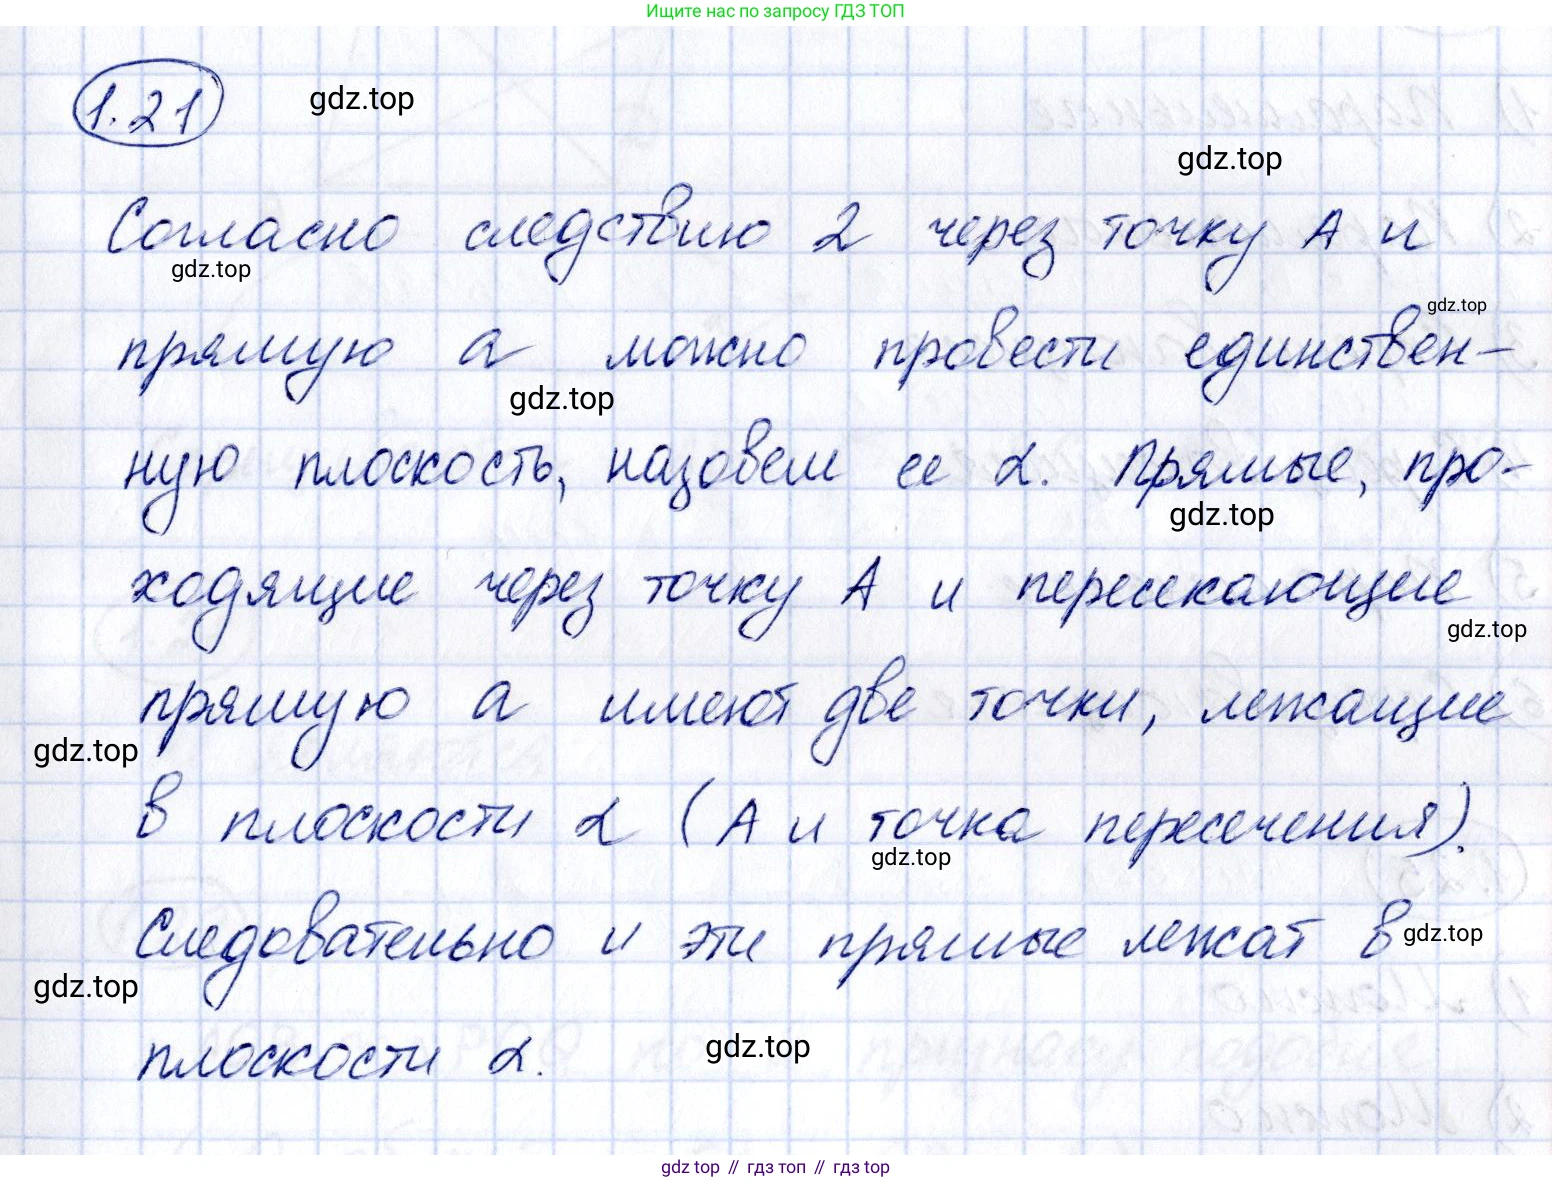 Ищите нас по запросу ГДЗ ТОП
1.21
gdz.top
gdz.top
Согласно следствию 2 через точку А и
gdz.top
gdz.top
прямую а можно провести единствен-
gdz.top
ную плоскость, назовем ее α. Прямые, про-
gdz.top
ходящие через точку А и пересекающие
gdz.top
прямую а имеют две точки, лежащие
gdz.top
в плоскости α (А и точка пересечения).
gdz.top
Следовательно и эти прямые лежат в
gdz.top
gdz.top
плоскости α.
gdz.top
gdz top // гдз топ // гдз top